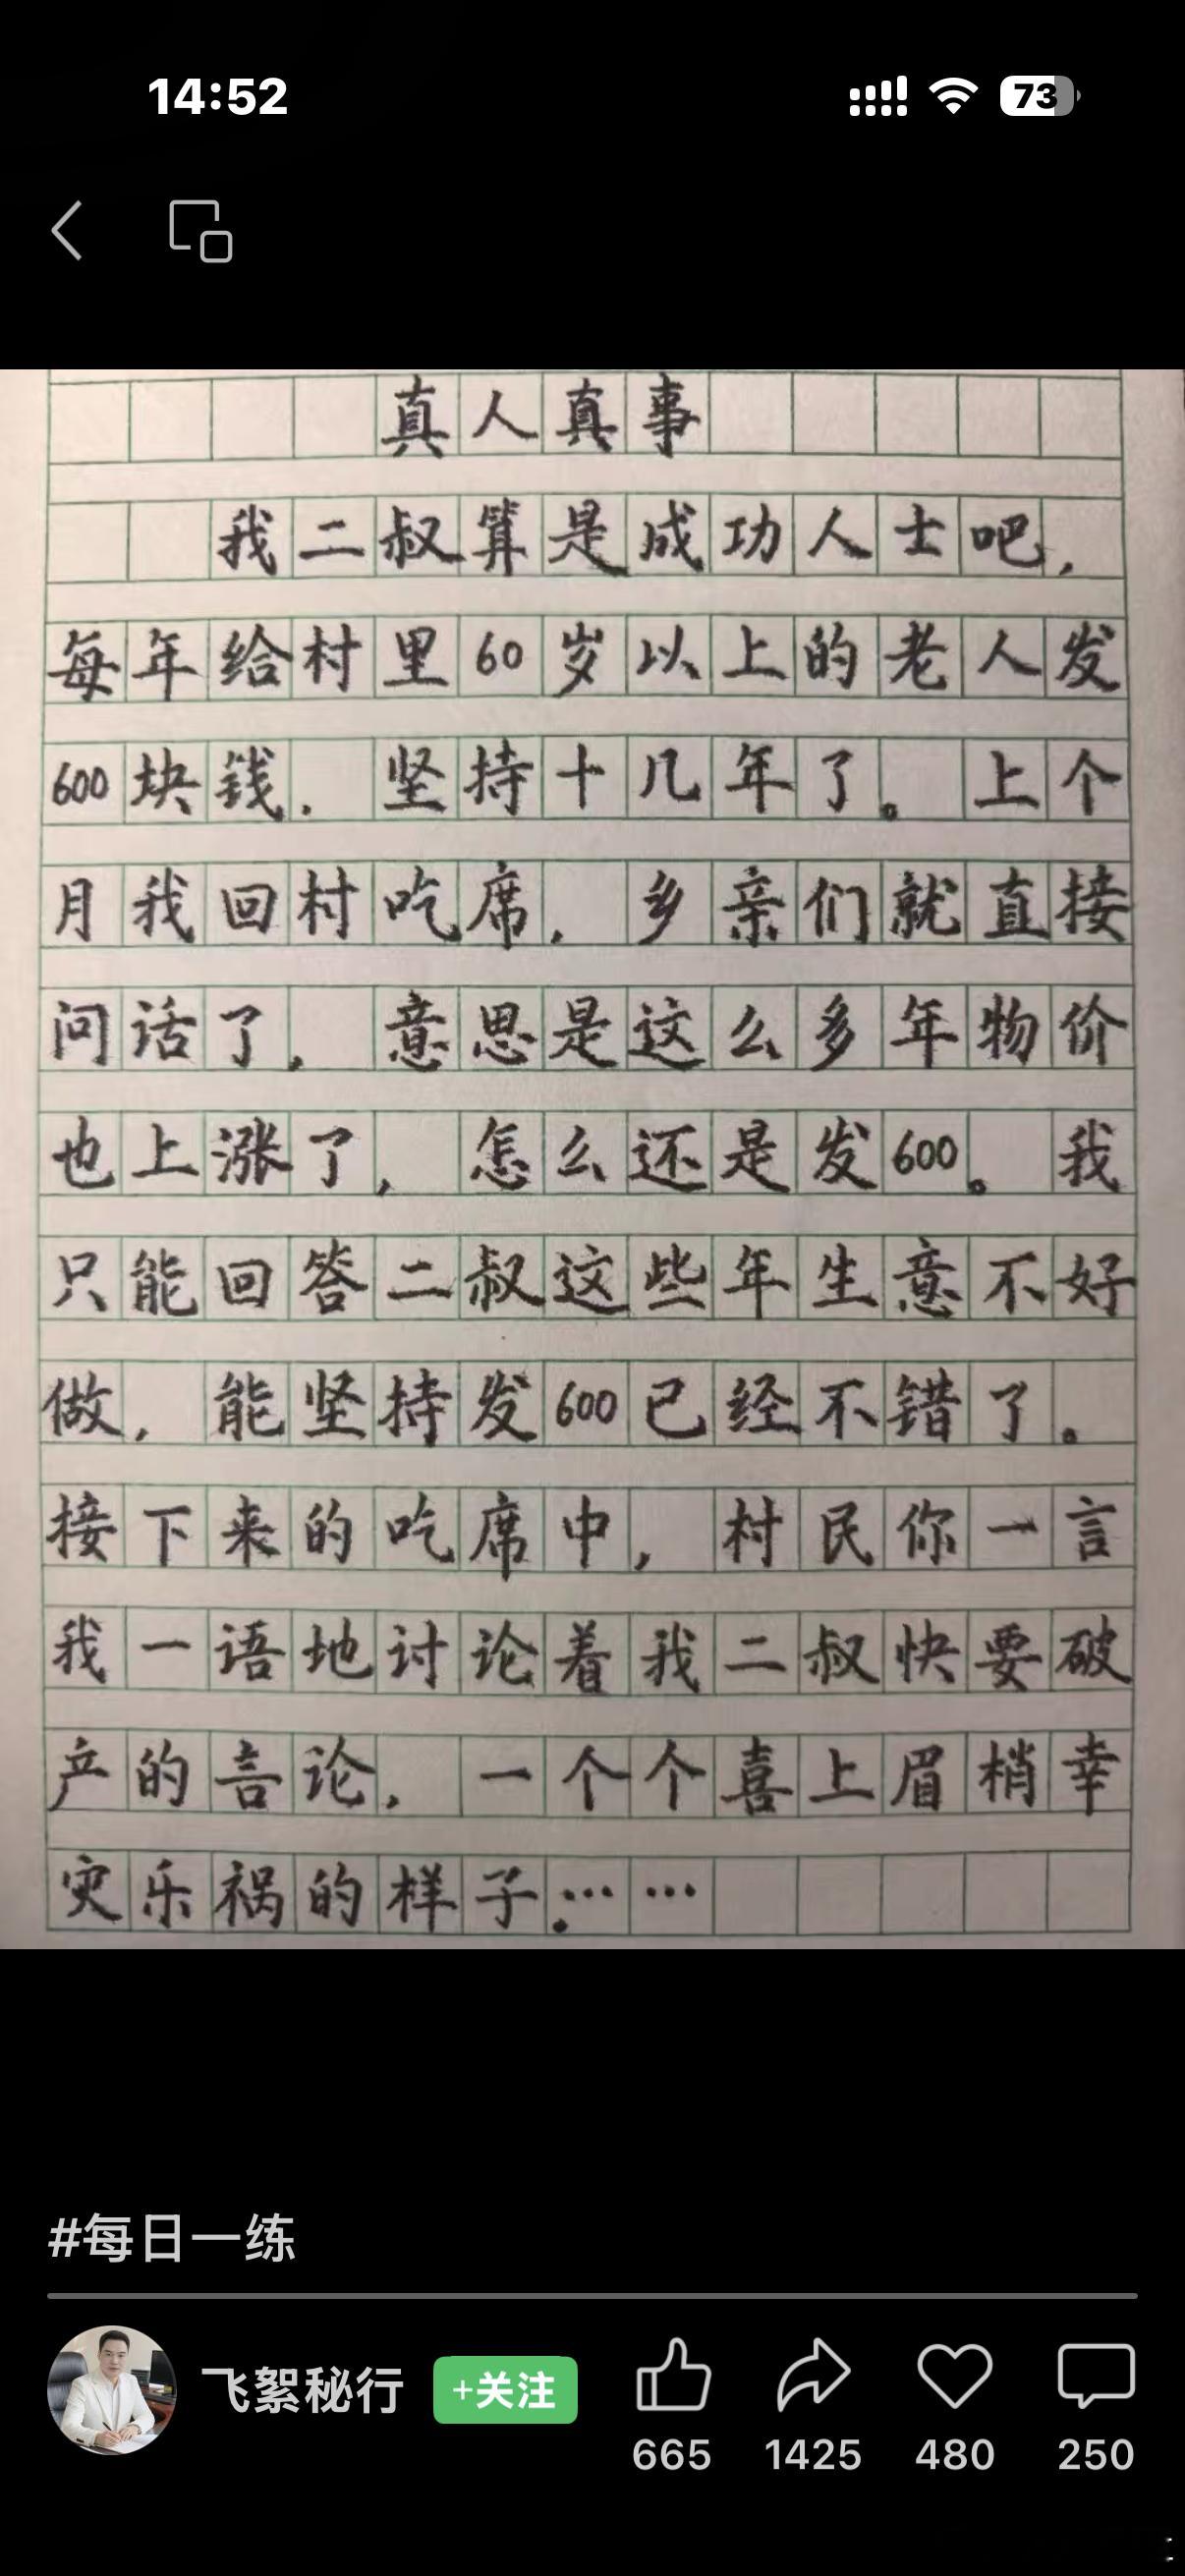 14:52
73
真人真事
我二叔算是成功人士吧,
每年给村里60岁以上的老人发
600块钱. 坚持十几年了。上个
月我回村吃席, 乡亲们就直接
问话了, 意思是这么多年物价
也上涨了, 怎么还是发600。我
只能回答二叔这些年生意不好
做, 能坚持发600已经不错了。
接下来的吃席中, 村民你一言
我一语地讨论着我二叔快要破
产的言论, 一个个喜上眉梢幸
灾乐祸的样子.……
#每日一练
飞絮秘行
+关注
665
1425
480
250